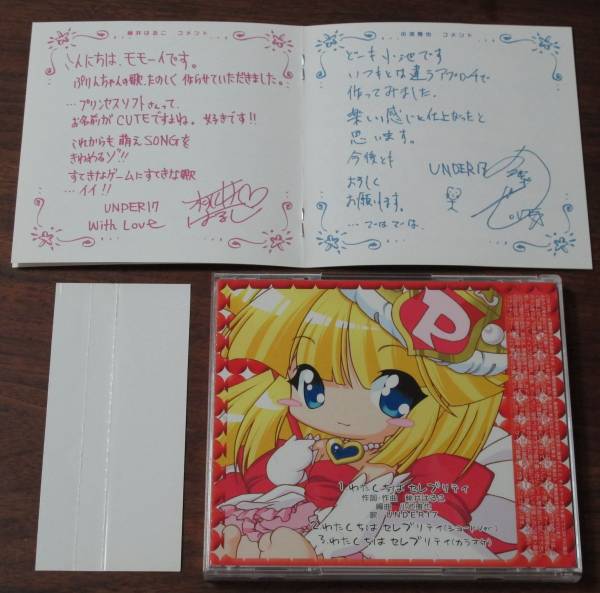 桃井はるこ コメント
こんにちは、モモーイです。
ぷりんちゃんの歌、たのしく作らせていただきました。
…プリンセスソフトさんって、
お名前がCUTEですよね。好きです!!
これからも萌えSONGを
きわめるゾ!!
すてきなゲームにすてきな歌
…イイ!!
UNDER17
With Love
小池雅也 コメント
どーも小池です
いつもとは違うアプローチで
作ってみました.
楽しい感じに仕上がったと
思います。
今後とも
よろしく
お願いします。
…ではでは.
UNDER17
P
1.わたくしは セレブリティ
作詞・作曲 桃井はるこ
編曲 小池雅也
歌 UNDER17
2.わたくしは セレブリティ(ショートVer.)
3.わたくしは セレブリティ(カラオケ)